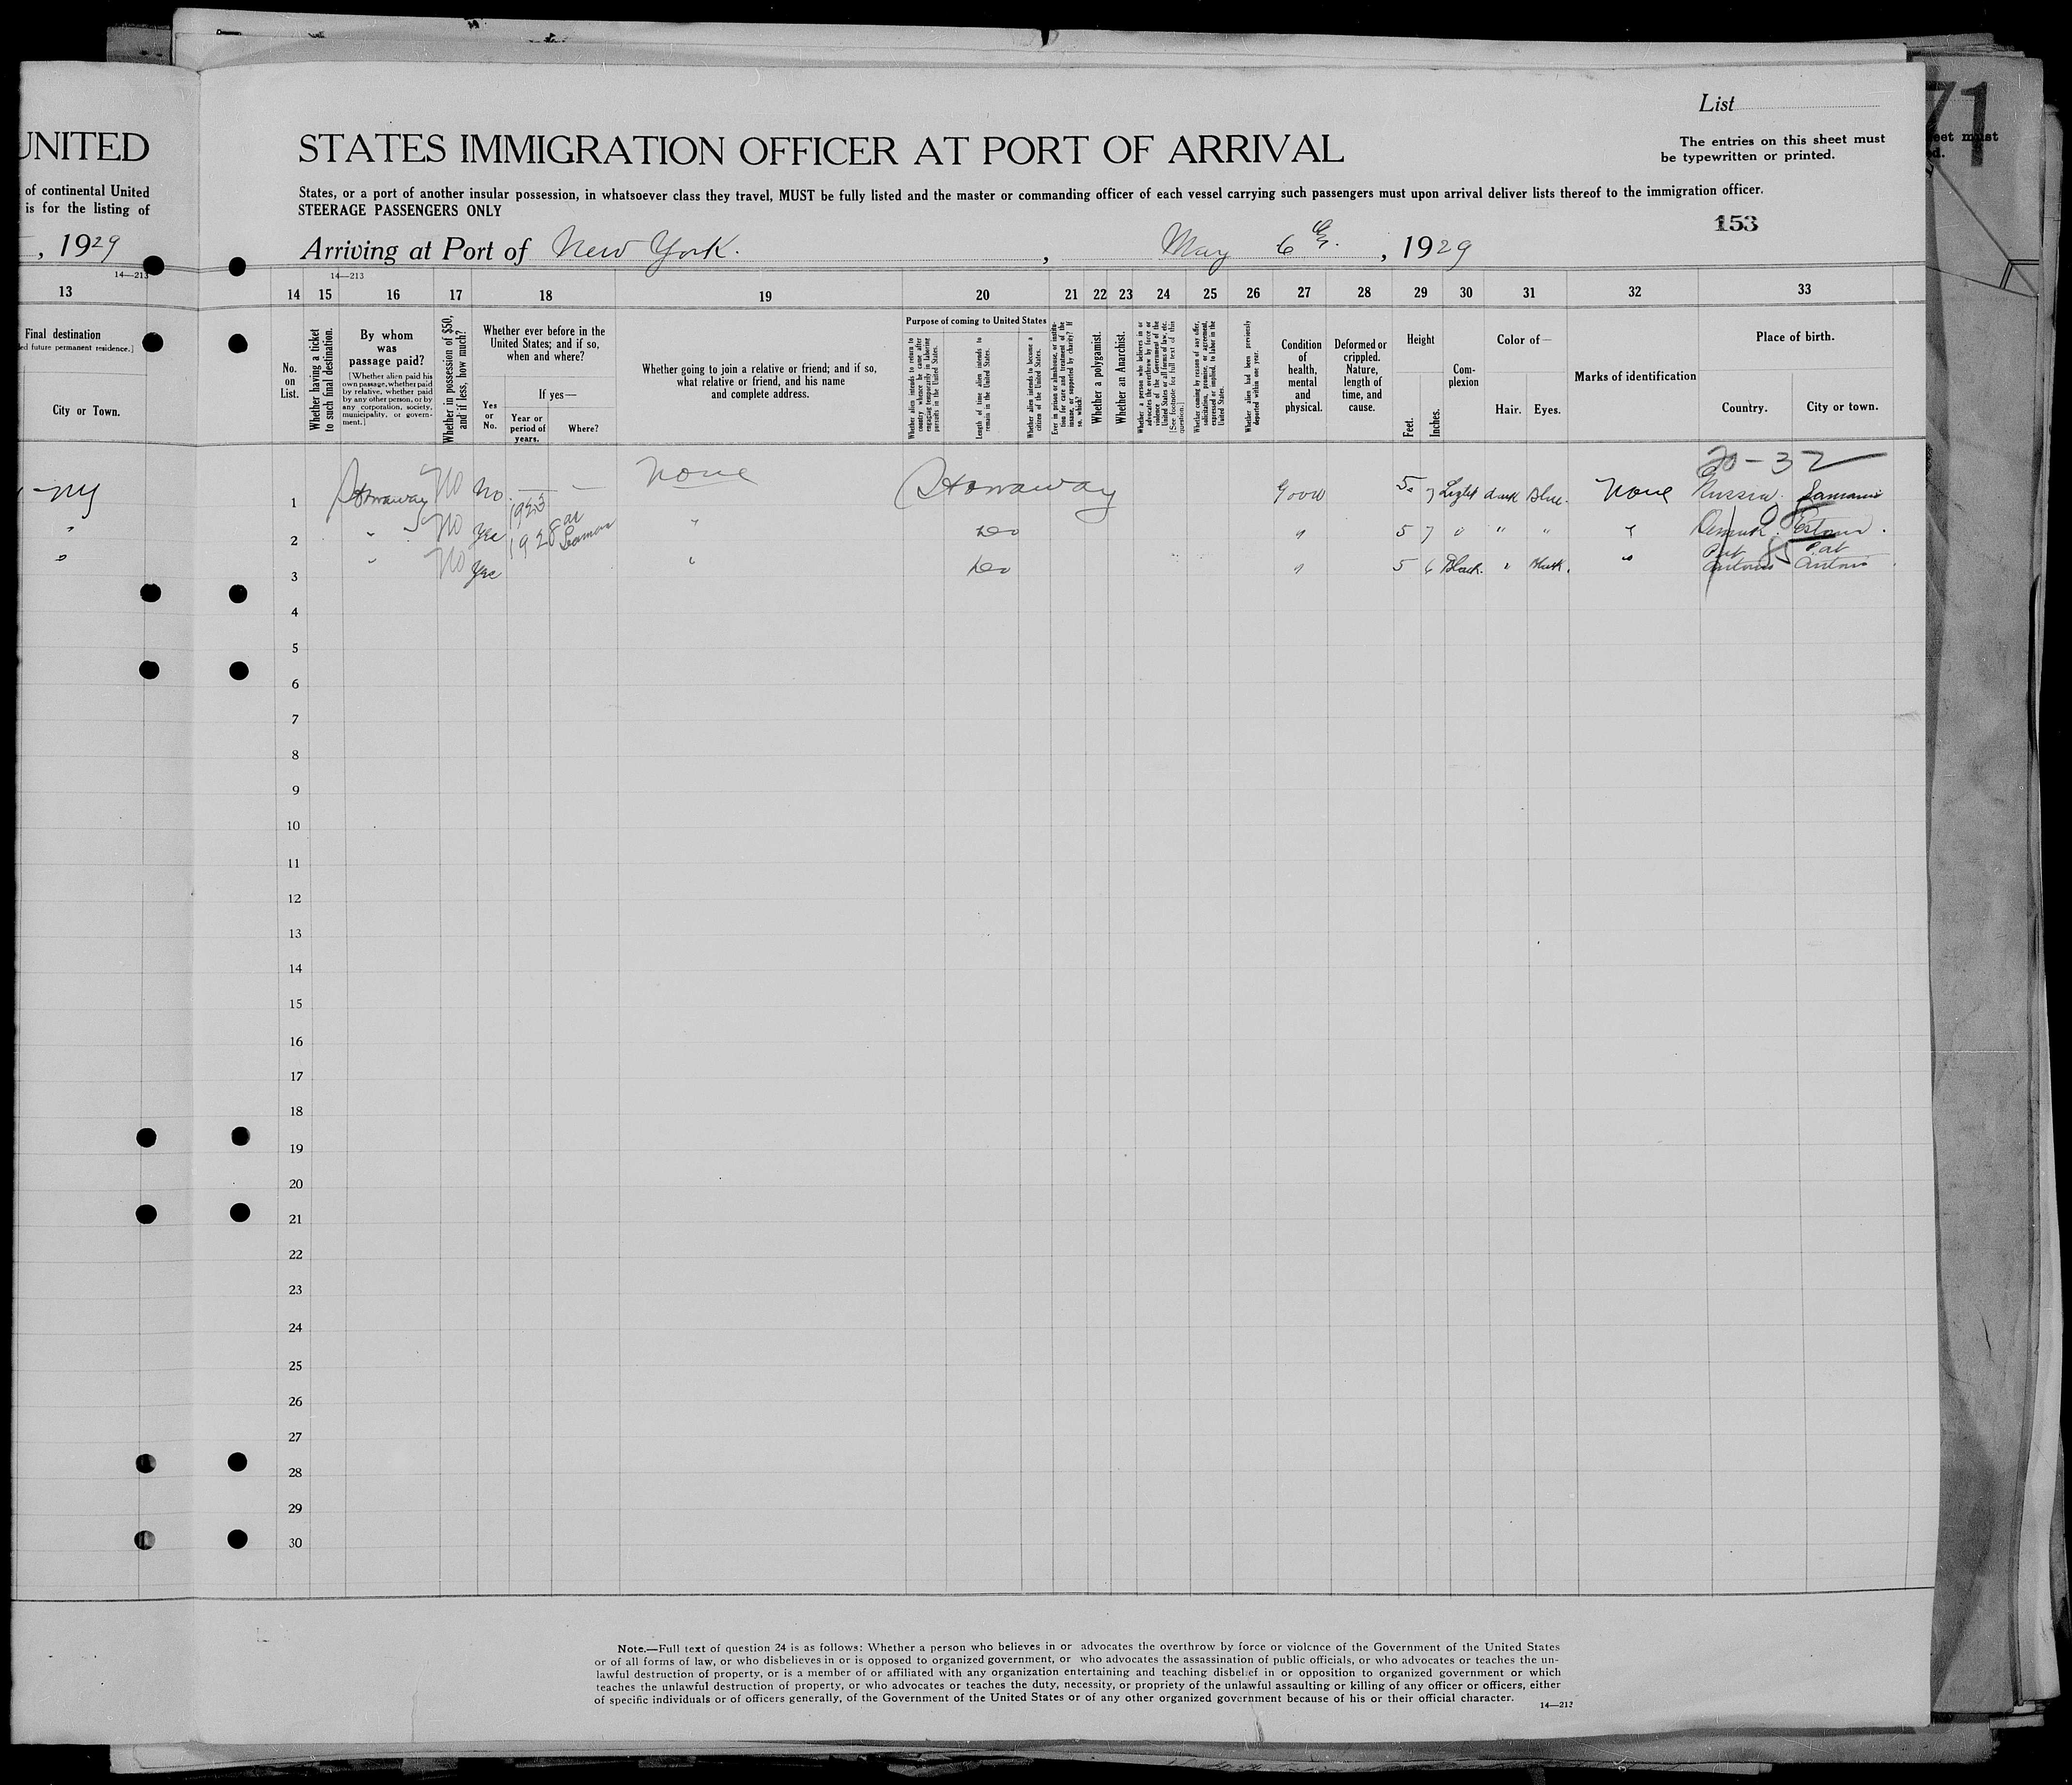 List
71
UNITED
STATES IMMIGRATION OFFICER AT PORT OF ARRIVAL
The entries on this sheet must
be typewritten or printed.
eet must
d.
of continental United
is for the listing of
States, or a port of another insular possession, in whatsoever class they travel, MUST be fully listed and the master or commanding officer of each vessel carrying such passengers must upon arrival deliver lists thereof to the immigration officer.
STEERAGE PASSENGERS ONLY
153
, 1929
Arriving at Port of New York. , May 6th. , 1929
14—213
14—213
13 14 15 16 17 18 19 20 21 22 23 24 25 26 27 28 29 30 31 32 33
Final destination
ed future permanent residence.]
City or Town.
No. on List.
Whether having a ticket to such final destination.
By whom was passage paid?
[Whether alien paid his own passage, whether paid by relative, whether paid by any other person, or by any corporation, society, municipality, or government.]
Whether in possession of $50, and if less, how much?
Whether ever before in the United States; and if so, when and where?
Yes or No.
If yes—
Year or period of years.
Where?
Whether going to join a relative or friend; and if so, what relative or friend, and his name and complete address.
Purpose of coming to United States
Whether alien intends to return to country whence he came after engaging temporarily in laboring pursuits in the United States.
Length of time alien intends to remain in the United States.
Whether alien intends to become a citizen of the United States.
Ever in prison or almshouse, or institution for care and treatment of the insane, or supported by charity? If so, which?
Whether a polygamist.
Whether an Anarchist.
Whether a person who believes in or advocates the overthrow by force or violence of the Government of the United States or all forms of law, etc. [See footnote for full text of this question.]
Whether coming by reason of any offer, solicitation, promise, or agreement, expressed or implied, to labor in the United States.
Whether alien had been previously deported within one year.
Condition of health, mental and physical.
Deformed or crippled. Nature, length of time, and cause.
Height
Feet.
Inches.
Complexion
Color of—
Hair.
Eyes.
Marks of identification
Place of birth.
Country.
City or town.
20-32
-NY 1 Stowaway No No. — — None Stowaway Good 5. 7 Light dark Blue. None Russia.
" 2 " No Yes 1923 1928 as Seaman " Do " 5 7 " " " "
" 3 " No Yes " Do " 5 6 Black. " Black. " Port Antonio 85 Port Antonio
4
5
6
7
8
9
10
11
12
13
14
15
16
17
18
19
20
21
22
23
24
25
26
27
28
29
30
Note.—Full text of question 24 is as follows: Whether a person who believes in or advocates the overthrow by force or violence of the Government of the United States
or of all forms of law, or who disbelieves in or is opposed to organized government, or who advocates the assassination of public officials, or who advocates or teaches the un-
lawful destruction of property, or is a member of or affiliated with any organization entertaining and teaching disbelief in or opposition to organized government or which
teaches the unlawful destruction of property, or who advocates or teaches the duty, necessity, or propriety of the unlawful assaulting or killing of any officer or officers, either
of specific individuals or of officers generally, of the Government of the United States or of any other organized government because of his or their official character.
14—212